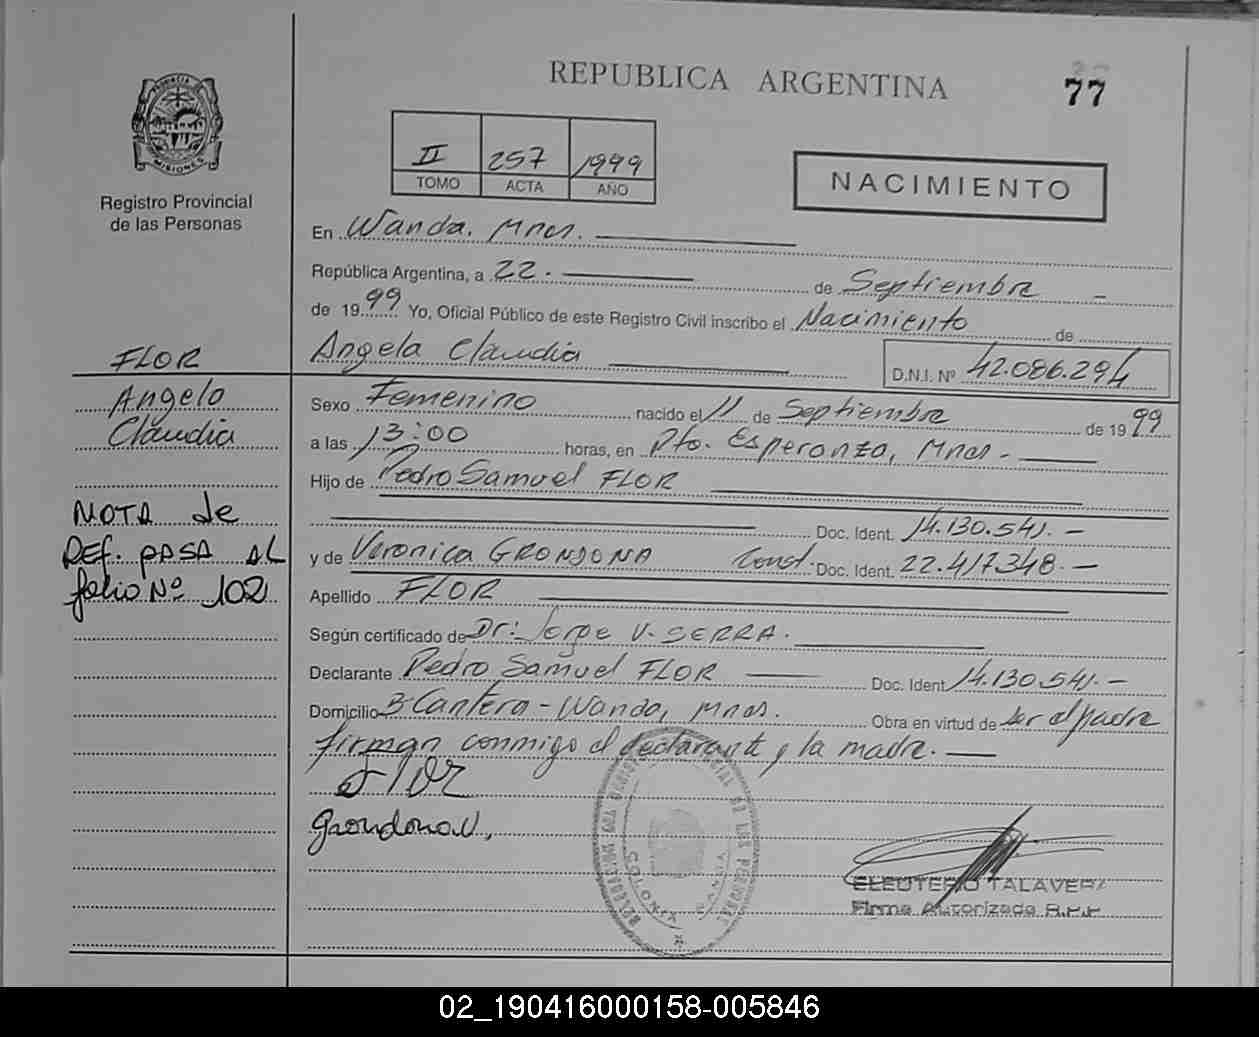 REPUBLICA ARGENTINA
77
PROVINCIA DE MISIONES
Registro Provincial
de las Personas
II 257 1999
TOMO ACTA AÑO
NACIMIENTO
En Wanda. Mnes.
República Argentina, a 22. de Septiembre
de 1999 Yo, Oficial Público de este Registro Civil inscribo el Nacimiento de
Angela Claudia D.N.I. Nº 42.086.294
FLOR
Angela
Claudia
NOTA de
DEF. PASA AL
folio Nº 102
Sexo Femenino nacido el 11 de Septiembre de 1999
a las 13:00 horas, en Pto. Esperanza, Mnes.-
Hijo de Pedro Samuel FLOR
Doc. Ident. 14.130.541.-
y de Veronica GRONDONA Const. Doc. Ident. 22.417.348.-
Apellido FLOR
Según certificado de Dr: Jorge V. SERRA.
Declarante Pedro Samuel FLOR Doc. Ident 14.130.541.-
Domicilio 3 Cantera - Wanda, Mnes. Obra en virtud de ser el padre
firman conmigo el declarante y la madre.
Flor
Grondona V,
COLONIA WANDA
ELEUTERIO TALAVERA
Firma Autorizada R.P.P
02_190416000158-005846